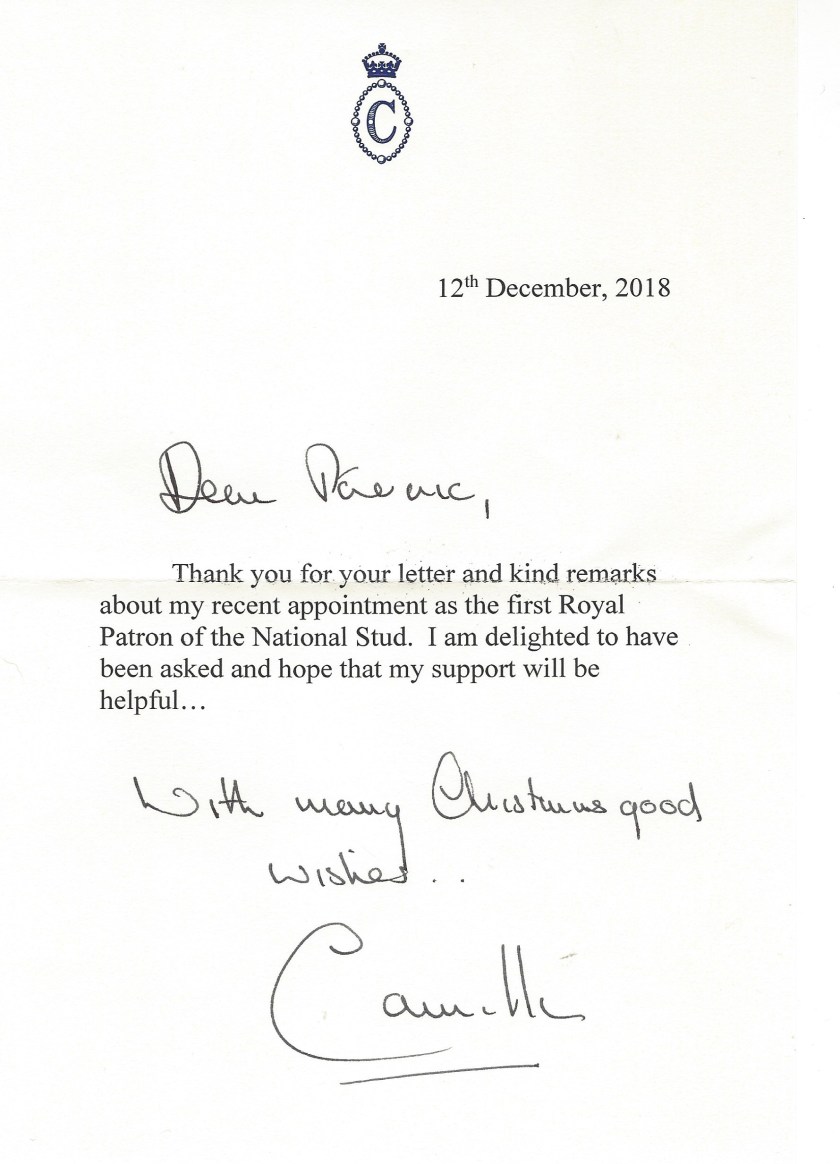 C
12th December, 2018
Dear
Thank you for your letter and kind remarks
about my recent appointment as the first Royal
Patron of the National Stud.  I am delighted to have
been asked and hope that my support will be
helpful…
With many Christmas good
wishes..
Camilla